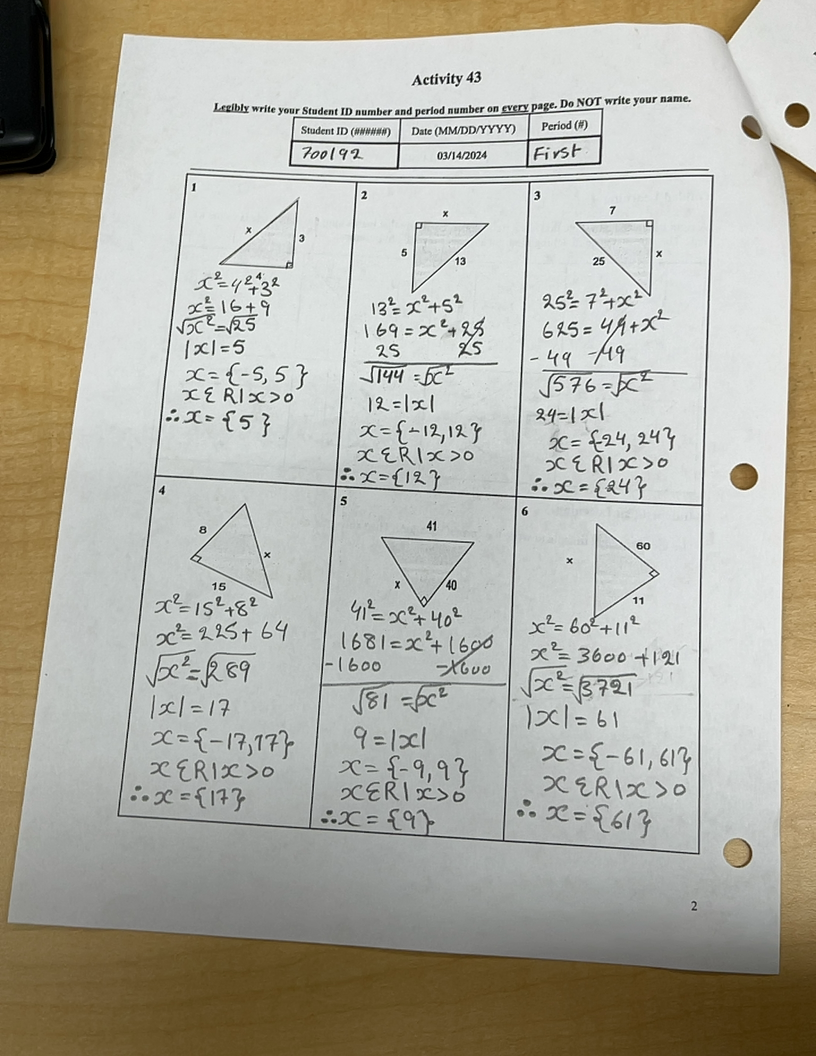 Activity 43
Legibly write your Student ID number and period number on every page. Do NOT write your name.
Student ID (######) Date (MM/DD/YYYY) Period (#)
700192 03/14/2024 First
1
x
3
4
x²=4²+3²
x²=16+9
√x²=√25
|x|=5
x={-5,5}
x ε R|x>0
∴x={5}
2
x
5
13
13²=x²+5²
169=x²+25
25 25
√144=√x²
12=|x|
x={-12,12}
x ε R|x>0
∴x={12}
3
7
25
x
25²=7²+x²
625=49+x²
-49 -49
√576=√x²
24=|x|
x={24,24}
x ε R|x>0
∴x={24}
4
8
x
15
x²=15²+8²
x²=225+64
√x²=√289
|x|=17
x={-17,17}
x ε R|x>0
∴x={17}
5
41
x
40
41²=x²+40²
1681=x²+1600
-1600 -1600
√81=√x²
9=|x|
x={-9,9}
x ε R|x>0
∴x={9}
6
60
x
11
x²=60²+11²
x²=3600+121
√x²=√3721
|x|=61
x={-61,61}
x ε R|x>0
∴x={61}
2